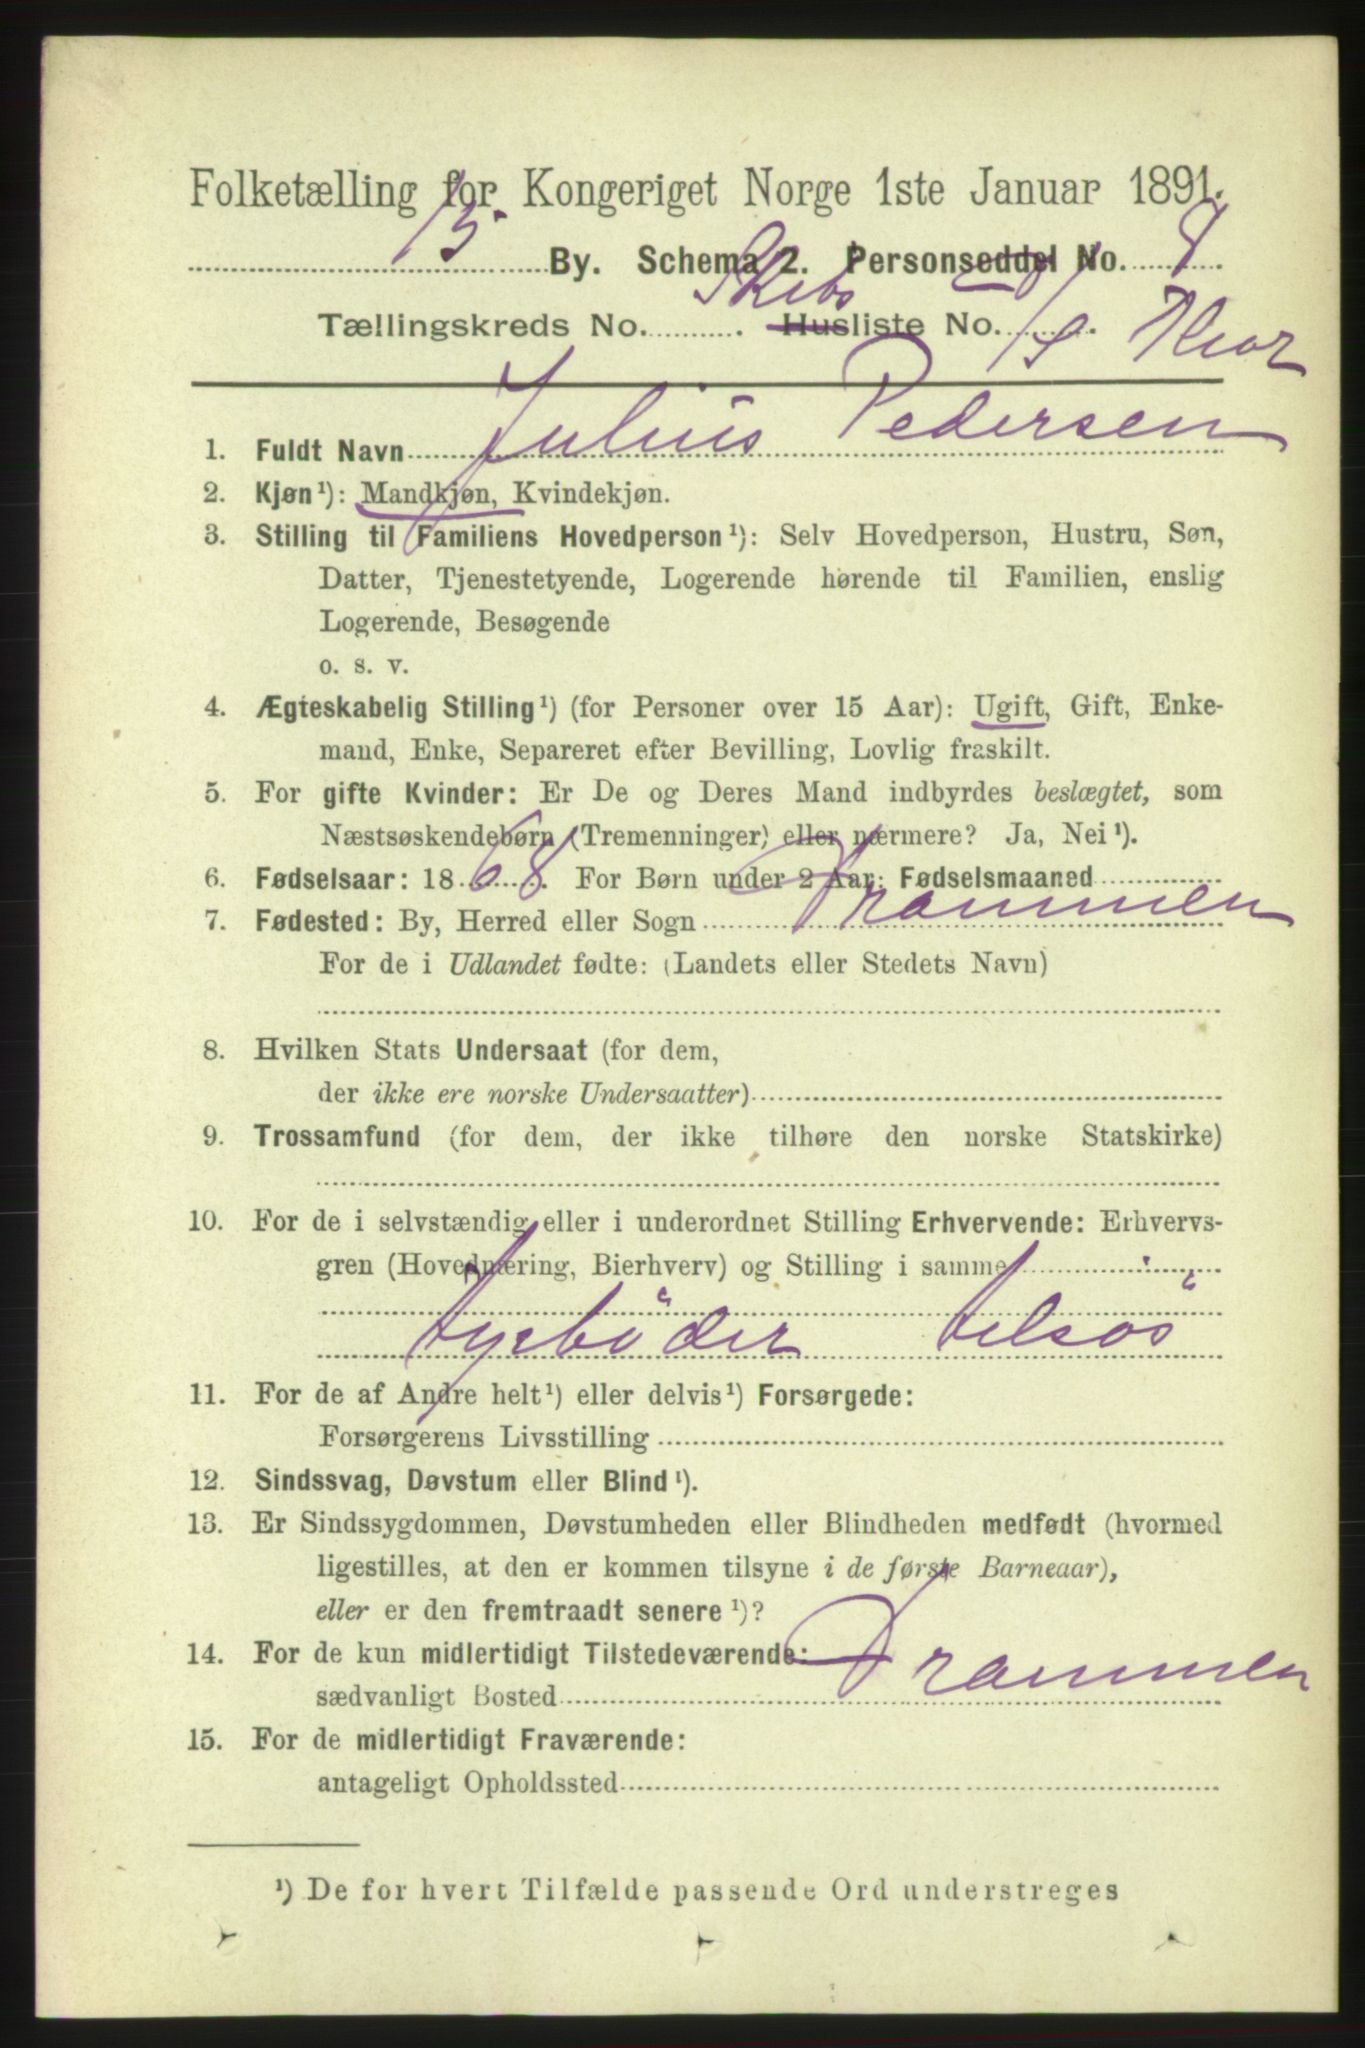 Folketælling for Kongeriget Norge 1ste Januar 1891.
15 By. Schema 2. Personseddel No. 8
Tællingskreds No. . Skibs Husliste No. . S Thor
1. Fuldt Navn Julius Pedersen
2. Kjøn¹): Mandkjøn, Kvindekjøn.
3. Stilling til Familiens Hovedperson¹): Selv Hovedperson, Hustru, Søn,
Datter, Tjenestetyende, Logerende hørende til Familien, enslig
Logerende, Besøgende
o. s. v.
4. Ægteskabelig Stilling¹) (for Personer over 15 Aar): Ugift, Gift, Enke-
mand, Enke, Separeret efter Bevilling, Lovlig fraskilt.
5. For gifte Kvinder: Er De og Deres Mand indbyrdes beslægtet, som
Næstsøskendebørn (Tremenninger) eller nærmere? Ja, Nei¹).
6. Fødselsaar: 1868. For Børn under 2 Aar: Fødselsmaaned
7. Fødested: By, Herred eller Sogn Drammen
For de i Udlandet fødte: (Landets eller Stedets Navn)
8. Hvilken Stats Undersaat (for dem,
der ikke ere norske Undersaatter)
9. Trossamfund (for dem, der ikke tilhøre den norske Statskirke)
10. For de i selvstændig eller i underordnet Stilling Erhvervende: Erhvervs-
gren (Hovednæring, Bierhverv) og Stilling i samme
fyrböder
11. For de af Andre helt¹) eller delvis¹) Forsørgede:
Forsørgerens Livsstilling
12. Sindssvag, Døvstum eller Blind¹).
13. Er Sindssygdommen, Døvstumheden eller Blindheden medfødt (hvormed
ligestilles, at den er kommen tilsyne i de første Barneaar),
eller er den fremtraadt senere¹)?
14. For de kun midlertidigt Tilstedeværende:
sædvanligt Bosted Drammen
15. For de midlertidigt Fraværende:
antageligt Opholdssted
¹) De for hvert Tilfælde passende Ord understreges